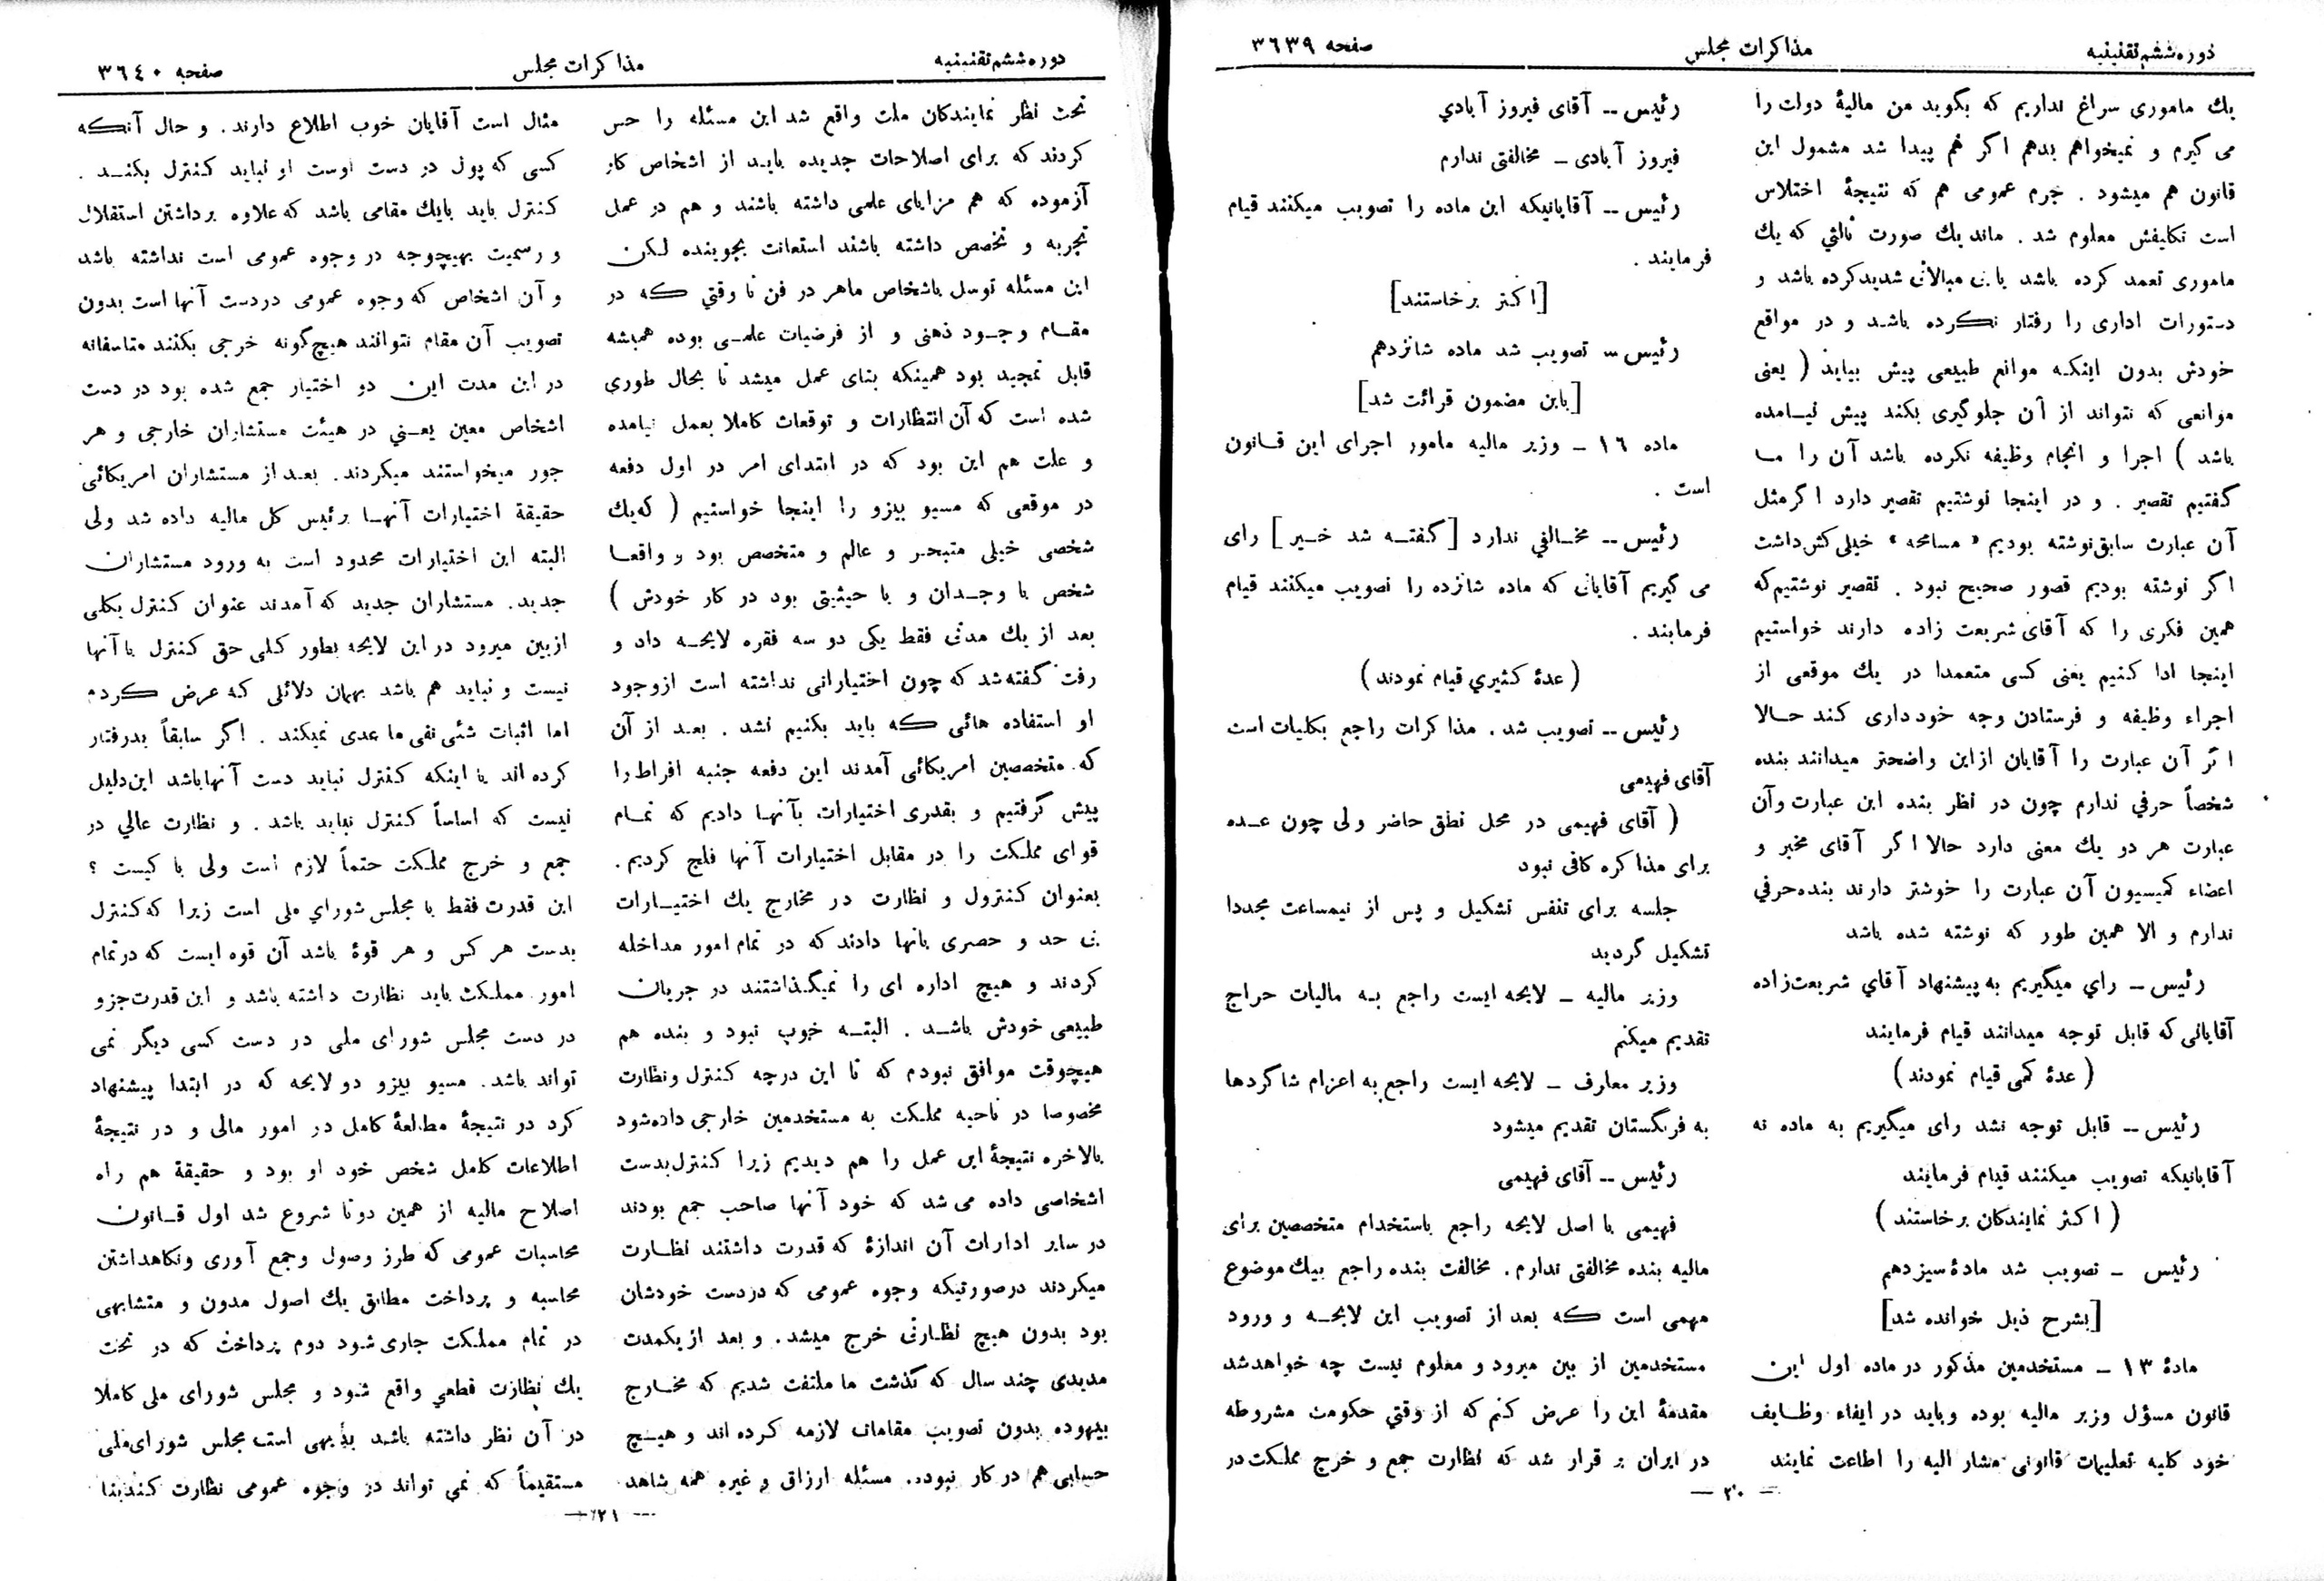 دوره ششم تقنینیه
مذاکرات مجلس
صفحه ٣٦٣٩
یك ماموری سراغ نداریم که بگوید من مالیهٔ دولت را
می گیرم و نمیخواهم بدهم اگر هم پیدا شد مشمول این
قانون هم میشود . جرم عمومی هم که نتیجهٔ اختلاس
است تکلیفش معلوم شد . ماند یك صورت ثالثی که یك
ماموری تعمد کرده باشد یا بی مبالاتی شدید کرده باشد و
دستورات اداری را رفتار نکرده باشد و در مواقع
خودش بدون اینکه موانع طبیعی پیش بیاید ( یعنی
موانعی که نتواند از آن جلوگیری بکند پیش نیامده
باشد ) اجرا و انجام وظیفه نکرده باشد آن را ما
گفتیم تقصیر . و در اینجا نوشتیم تقصیر دارد اگر مثل
آن عبارت سابق نوشته بودیم « مسامحه » خیلی کش داشت
اگر نوشته بودیم قصور صحیح نبود . تقصیر نوشتیم که
همین فکری را که آقای شریعت زاده دارند خواستیم
اینجا ادا کنیم یعنی کسی متعمدا در یك موقعی از
اجراء وظیفه و فرستادن وجه خود داری کند حالا
اگر آن عبارت را آقایان از این واضحتر میدانند بنده
شخصاً حرفي ندارم چون در نظر بنده این عبارت وآن
عبارت هر دو یك معنی دارد حالا اگر آقای مخبر و
اعضاء کمیسیون آن عبارت را خوشتر دارند بنده حرفي
ندارم و الا همین طور که نوشته شده باشد
رئیس ــ رأي میگیریم به پیشنهاد آقاي شریعت‌زاده
آقایانی که قابل توجه میدانند قیام فرمایند
( عدهٔ کمی قیام نمودند )
رئیس ــ قابل توجه نشد رای میگیریم به ماده نه
آقایانیکه تصویب میکنند قیام فرمایند
( اکثر نمایندکان برخاستند )
رئیس ــ تصویب شد مادهٔ سیزدهم
[بشرح ذیل خوانده شد]
مادهٔ ١٣ ــ مستخدمین مذکور در ماده اول این
قانون مسؤل وزیر مالیه بوده وباید در ایفاء وظایف
خود کلیه تعلیمات قانونی مشار الیه را اطاعت نمایند
رئیس ــ آقای فیروز آبادي
فیروز آبادی ــ مخالفتی ندارم
رئیس ــ آقایانیکه این ماده را تصویب میکنند قیام
فرمایند .
[اکثر برخاستند]
رئیس ــ تصویب شد ماده شانزدهم
[باین مضمون قرائت شد]
ماده ١٦ ــ وزیر مالیه مامور اجرای این قانون
است .
رئیس ــ مخالفي ندارد [گفته شد خیر] رای
می گیریم آقایانی که ماده شانزده را تصویب میکنند قیام
فرمایند .
( عدهٔ کثیري قیام نمودند )
رئیس ــ تصویب شد . مذاکرات راجع بکلیات است
آقای فهیمی
( آقای فهیمی در محل نطق حاضر ولی چون عده
برای مذاکره کافی نبود
جلسه برای تنفس تشکیل و پس از نیمساعت مجددا
تشکیل گردید
وزیر مالیه ــ لایحه ایست راجع به مالیات حراج
تقدیم میکنم
وزیر معارف ــ لایحه ایست راجع به اعزام شاگردها
به فرنگستان تقدیم میشود
رئیس ــ آقای فهیمی
فهیمی با اصل لایحه راجع باستخدام متخصصین برای
مالیه بنده مخالفتی ندارم . مخالفت بنده راجع بیك موضوع
مهمی است که بعد از تصویب این لایحه و ورود
مستخدمین از بین میرود و معلوم نیست چه خواهد شد
مقدمهٔ این را عرض کنم که از وقتي حکومت مشروطه
در ایران بر قرار شد که نظارت جمع و خرج مملکت در
— ٢٠ —
دوره ششم تقنینیه
مذاکرات مجلس
صفحه ٣٦٤٠
تحت نظر نمایندکان ملت واقع شد این مسئله را حس
کردند که برای اصلاحات جدیده باید از اشخاص کار
آزموده که هم مزایای علمی داشته باشند و هم در عمل
تجربه و تخصص داشته باشند استعانت بجویند لکن
این مسئله توسل باشخاص ماهر در فن تا وقتي که در
مقام وجود ذهنی و از فرضیات علمی بوده همیشه
قابل تمجید بود همینکه بنای عمل میشد تا بحال طوری
شده است که آن انتظارات و توقعات کاملا بعمل نیامده
و علت هم این بود که در ابتدای امر در اول دفعه
در موقعی که مسیو بیزو را اینجا خواستیم ( که یك
شخصی خیلی متبحر و عالم و متخصص بود و واقعا
شخص با وجدان و با حیثیتی بود در کار خودش )
بعد از یك مدتی فقط یکی دو سه فقره لایحه داد و
رفت گفته شد که چون اختیاراتی نداشته است از وجود
او استفاده هائی که باید بکنیم نشد . بعد از آن
که متخصصین امریکائی آمدند این دفعه جنبه افراط را
پیش گرفتیم و بقدری اختیارات بآنها دادیم که تمام
قوای مملکت را در مقابل اختیارات آنها فلج کردیم .
بعنوان کنترول و نظارت در مخارج یك اختیارات
بی حد و حصری بآنها دادند که در تمام امور مداخله
کردند و هیچ اداره ای را نمیگذاشتند در جریان
طبیعی خودش باشد . البته خوب نبود و بنده هم
هیچوقت موافق نبودم که تا این درجه کنترل و نظارت
مخصوصا در ناحیه مملکت به مستخدمین خارجی داده شود
بالاخره نتیجهٔ این عمل را هم دیدیم زیرا کنترل بدست
اشخاصی داده می شد که خود آنها صاحب جمع بودند
در سایر ادارات آن اندازهٔ که قدرت داشتند نظارت
میکردند درصورتیکه وجوه عمومی که در دست خودشان
بود بدون هیچ نظارتی خرج میشد . و بعد از یکمدت
مدیدی چند سال که گذشت ما ملتفت شدیم که مخارج
بیهوده بدون تصویب مقامات لازمه کرده اند و هیچ
حسابی هم در کار نبوده. مسئله ارزاق و غیره همه شاهد
مثال است آقایان خوب اطلاع دارند . و حال آنکه
کسی که پول در دست اوست او نباید کنترل بکند .
کنترل باید بایك مقامی باشد که علاوه بر داشتن استقلال
و رسمیت بهیچوجه در وجوه عمومی است نداشته باشد
و آن اشخاص که وجوه عمومی دردست آنها است بدون
تصویب آن مقام نتوانند هیچ گونه خرجی بکنند متاسفانه
در این مدت این دو اختیار جمع شده بود در دست
اشخاص معین یعني در هیئت مستشاران خارجی و هر
جور میخواستند میکردند . بعد از مستشاران امریکائی
حقیقة اختیارات آنها برئیس کل مالیه داده شد ولی
البته این اختیارات محدود است به ورود مستشاران
جدید . مستشاران جدید که آمدند عنوان کنترل بکلی
ازبین میرود در این لایحه بطور کلی حق کنترل با آنها
نیست و نباید هم باشد بهمان دلائلی که عرض کردم
اما اثبات شئی نفی ما عدی نمیکند . اگر سابقاً بدرفتار
کرده اند یا اینکه کنترل نباید دست آنها باشد این دلیل
نیست که اساساً کنترل نباید باشد . و نظارت عالي در
جمع و خرج مملکت حتماً لازم است ولی با کیست ؟
این قدرت فقط با مجلس شوراي ملی است زیرا که کنترل
بدست هر کس و هر قوهٔ باشد آن قوه ایست که در تمام
امور مملکت باید نظارت داشته باشد و این قدرت جزو
در دست مجلس شورای ملی در دست کسی دیگر نمی
تواند باشد . مسیو بیزو دو لایحه که در ابتدا پیشنهاد
کرد در نتیجهٔ مطالعهٔ کامل در امور مالی و در نتیجهٔ
اطلاعات کامل شخص خود او بود و حقیقة هم راه
اصلاح مالیه از همین دوتا شروع شد اول قانون
محاسبات عمومی که طرز وصول وجمع آوری ونکاهداشتن
محاسبه و پرداخت مطابق یك اصول مدون و متشابهی
در تمام مملکت جاری شود دوم پرداخت که در تحت
یك نظارت قطعي واقع شود و مجلس شورای ملی کاملا
در آن نظر داشته باشد بدیهی است مجلس شورای ملی
مستقیماً که نمي تواند در وجوه عمومی نظارت کند بنا
— ٢١ —